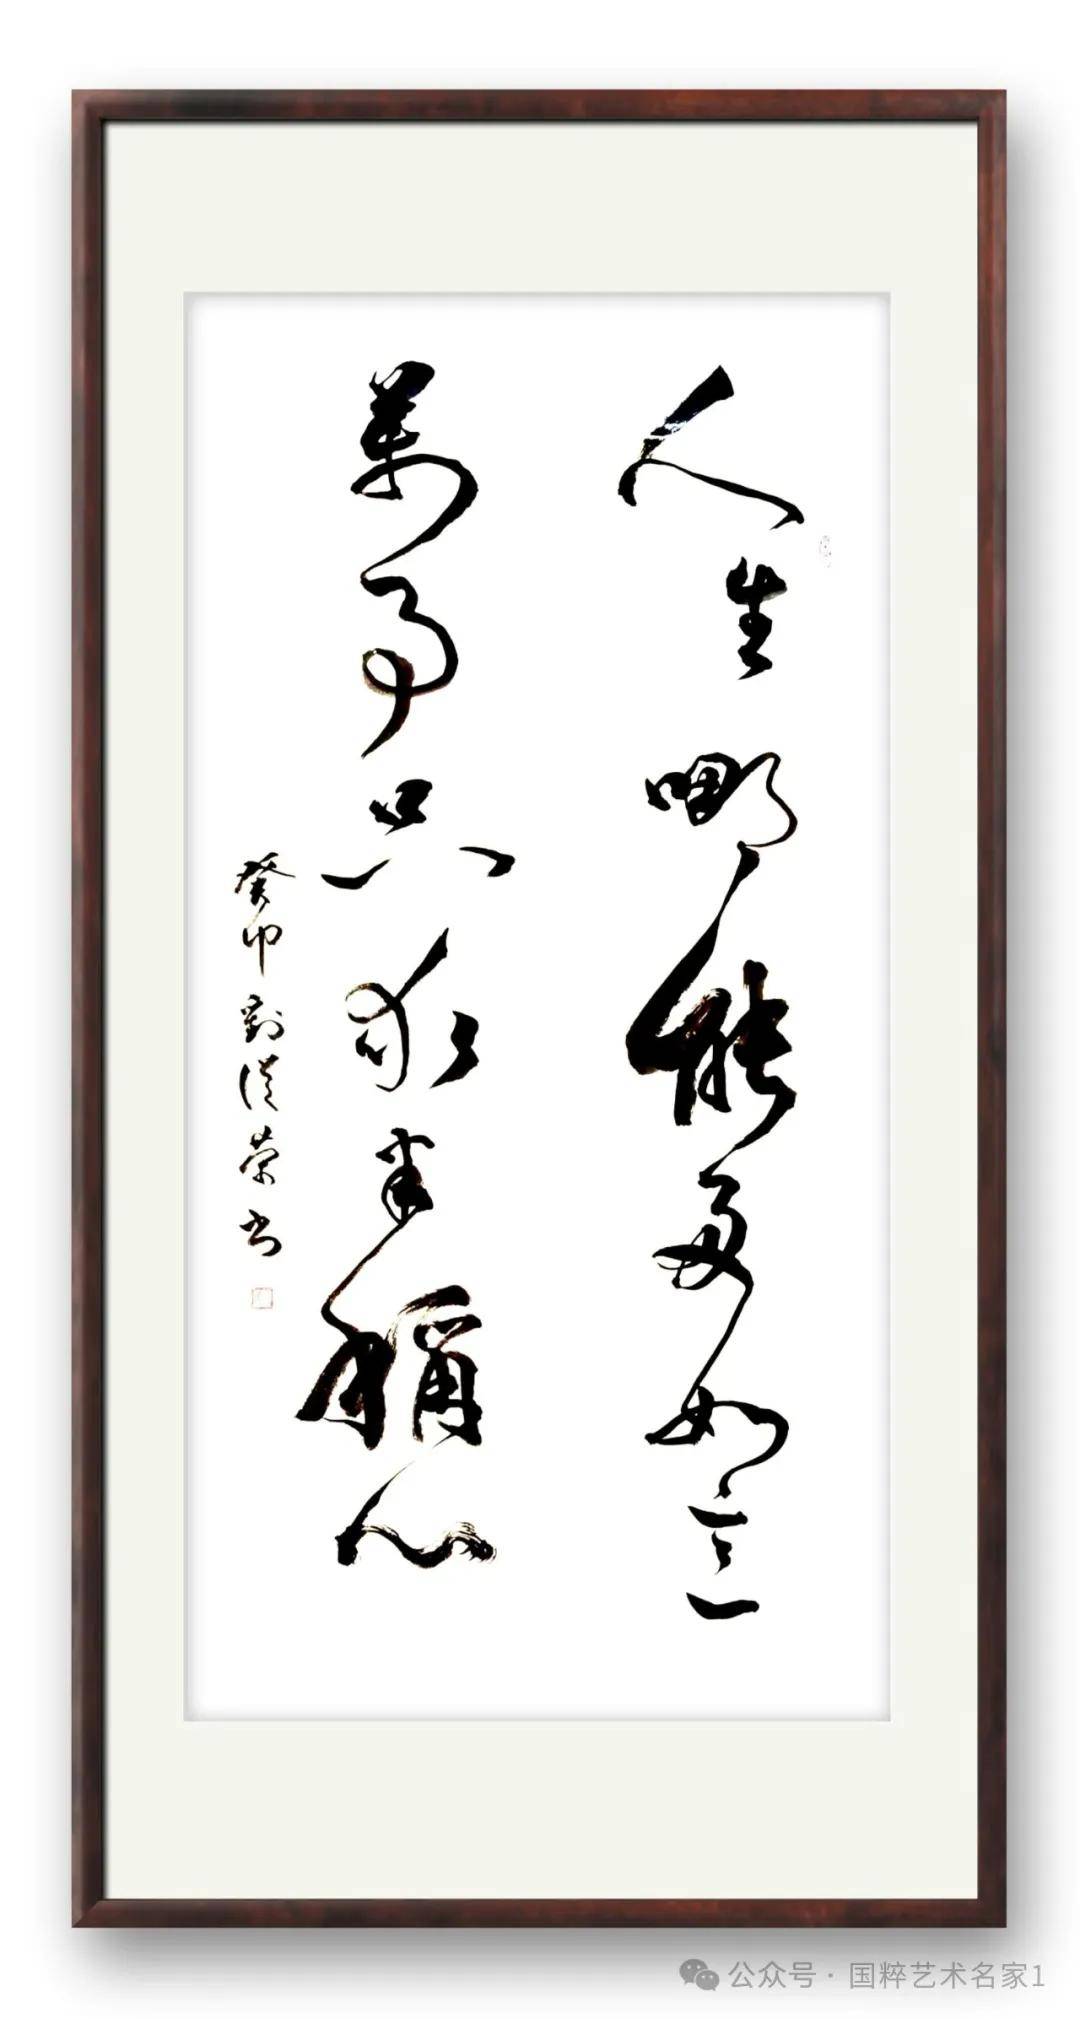 人生哪能多如意
萬事只求半稱心
癸卯劉漢荣书
公众号·国粹艺术名家1